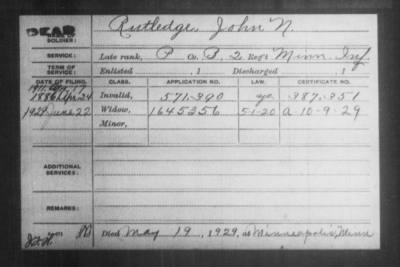 DEAD
SOLDIER: Rutledge, John N.
SERVICE: Late rank, P Co. B, 2 Reg't Minn. Inf.
TERM OF SERVICE: Enlisted , 1 Discharged , 1
DATE OF FILING. CLASS. APPLICATION NO. LAW. CERTIFICATE NO.
1886 Apr. 24 Invalid, 571.390 387.351
1929 June 22 Widow, 1645356 5-1-20 A-10-9-29
Minor,
ADDITIONAL SERVICES:
REMARKS:
Died May 19, 1929, at Minneapolis, Minn